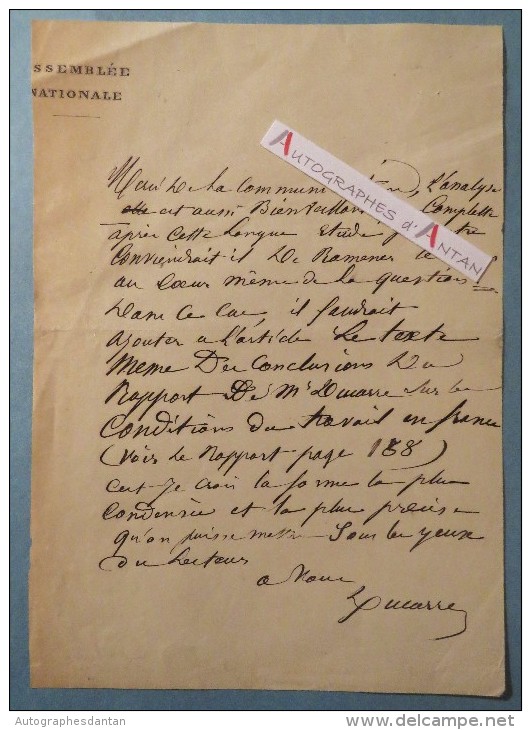 SSEMBLÉE
NATIONALE
AUTOGRAPHES d'ANTAN
Merci de la communication, L'analyse
elle est aussi Bienveillante Complette
après cette longue Etude
Conviendrait il De Ramener le
au Cœur même de la question
Dans Ce Cas, il faudrait
ajouter a L'article Le texte
Meme Des Conclusions Du
Rapport De Mr Ducarre sur les
Conditions du travail en france
(voir le Rapport page 188)
c'est je crois la forme la plus
condensée et la plus précise
qu'on puisse mettre Sous les yeux
du Lecteur
a Vous
Ducarre
Autographesdantan
delcampe.net